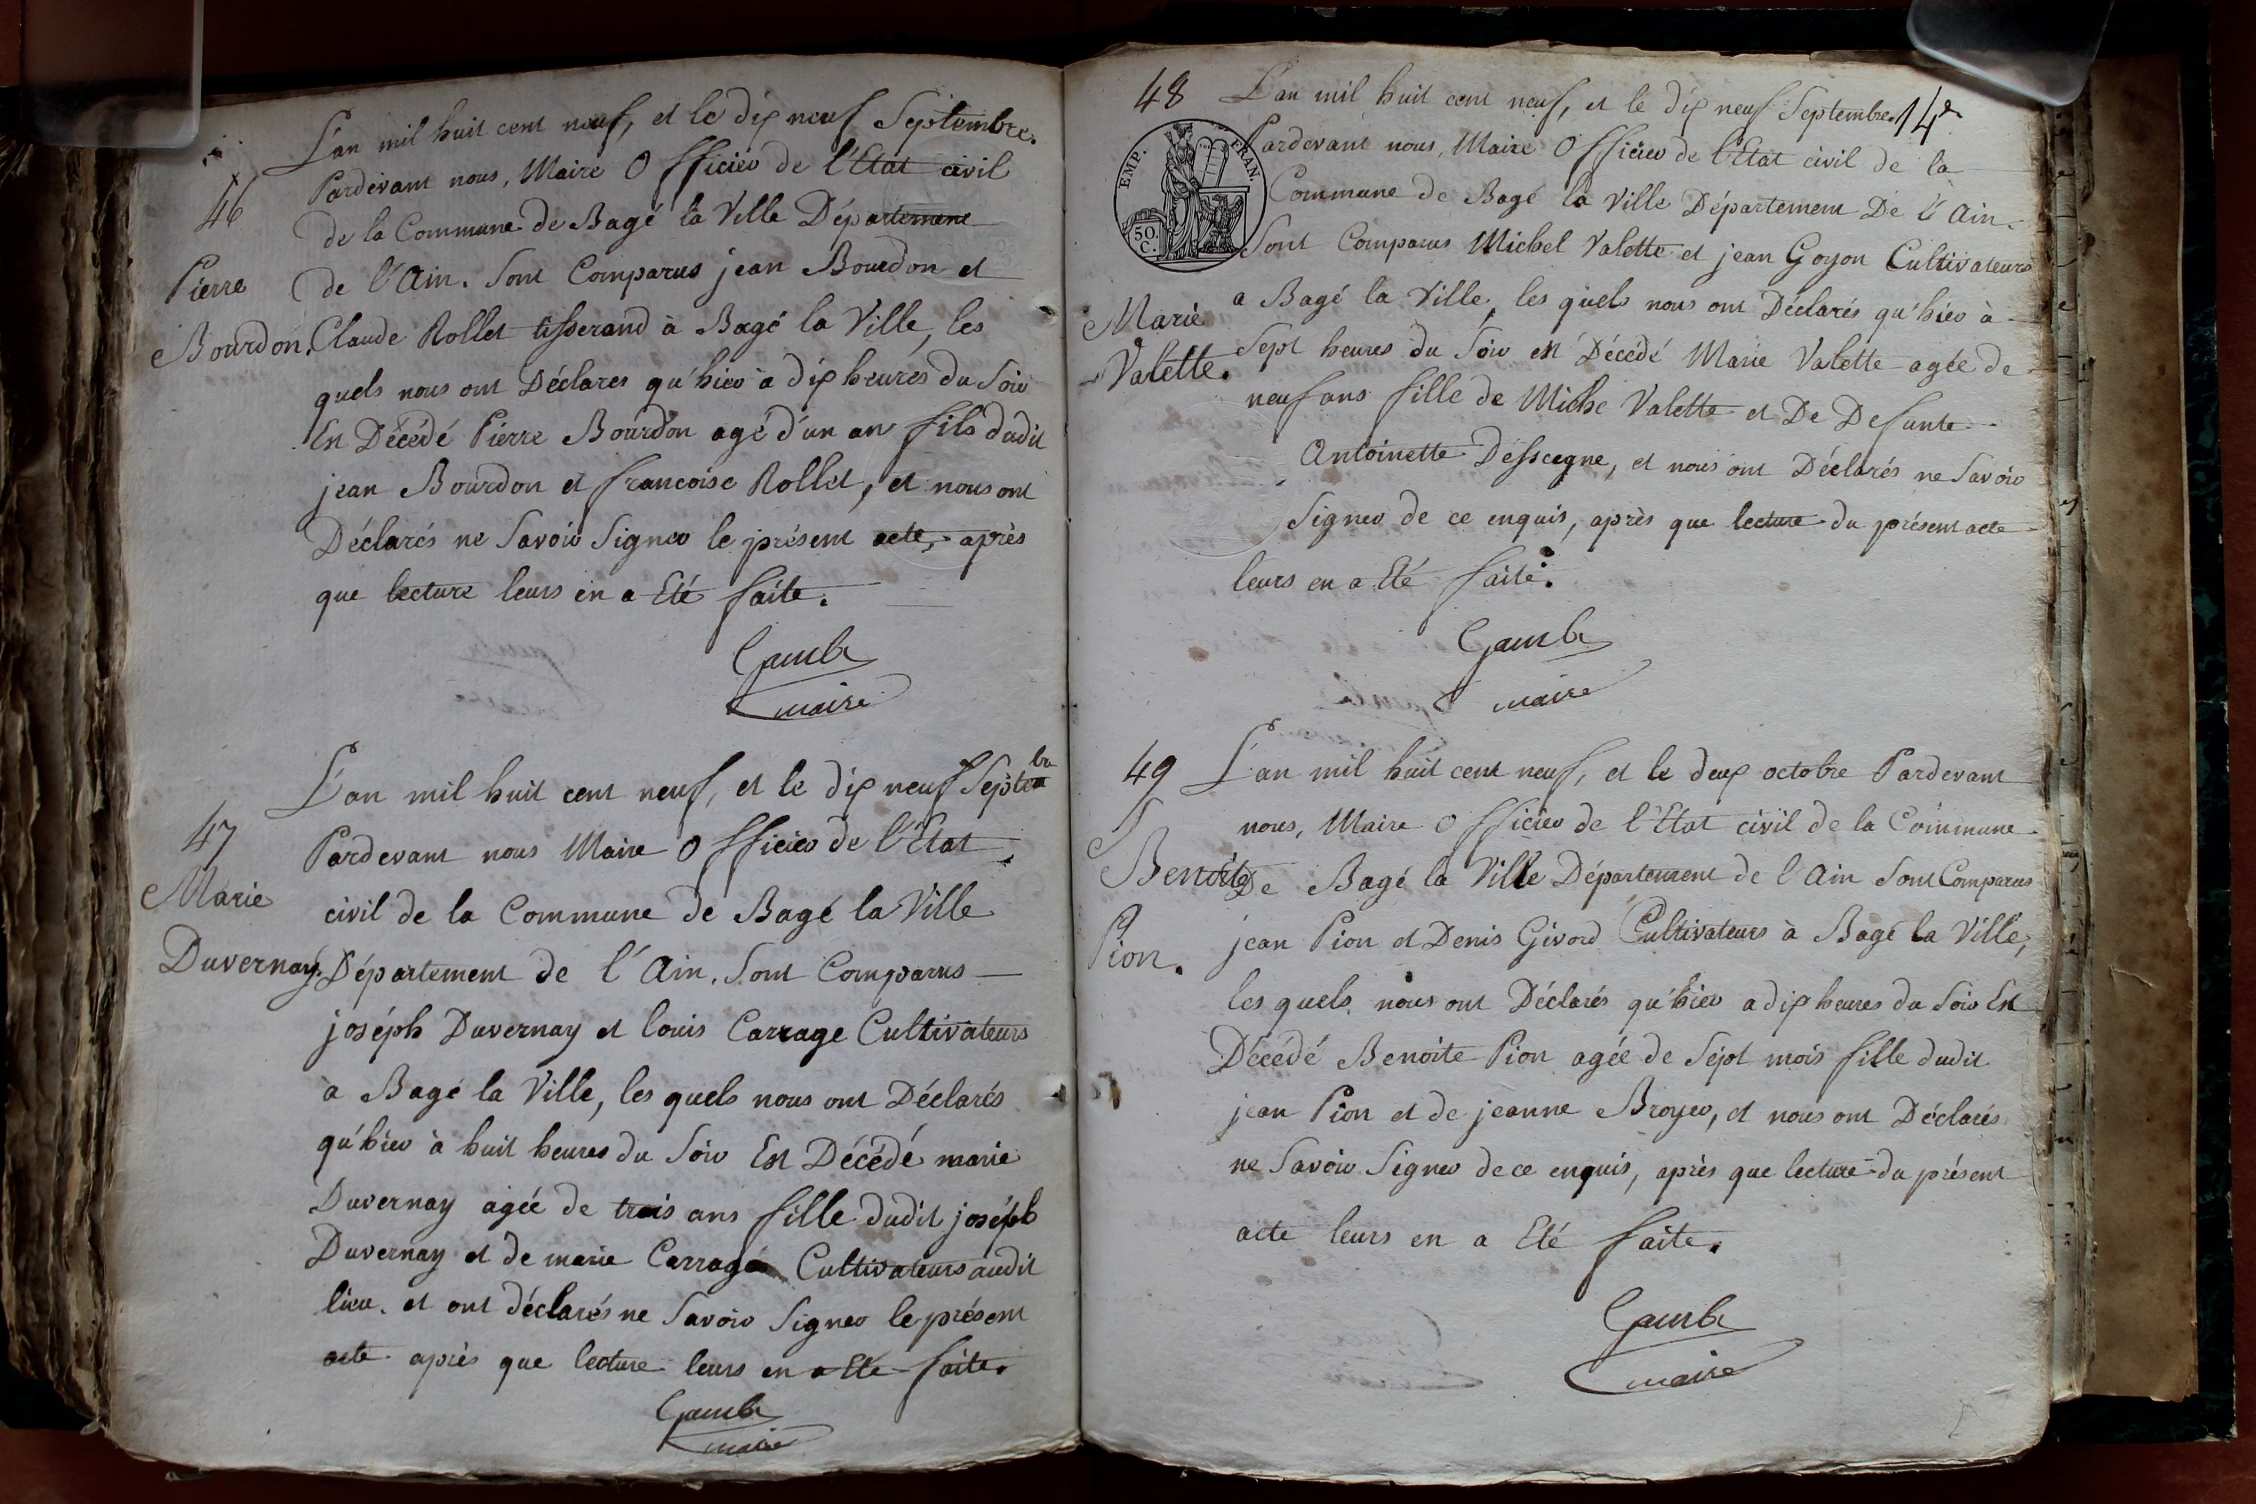 46
Pierre
Bourdon.
L'an mil huit cent neuf, et le dix neuf Septembre.
Pardevant nous, Maire Officier de l'Etat civil
de la Commune de Bagé la Ville Département
de l'Ain. Sont Comparus jean Bourdon et
Claude Rollet tisserand à Bagé la Ville, les
quels nous ont Déclarés qu'hier à dix heures du Soir
Est Décédé Pierre Bourdon agé d'un an fils dudit
jean Bourdon et francoise Rollet, et nous ont
Déclarés ne Savoir Signer le présent acte, après
que lecture leurs en a Eté faite.
Gamb
maire
47
Marie
Duvernay.
L'an mil huit cent neuf, et le dix neuf Septembre
Pardevant nous Maire Officier de l'Etat
civil de la Commune de Bagé la Ville
Département de l'Ain. Sont Comparus
joséph Duvernay et louis Carrage Cultivateurs
à Bagé la Ville, les quels nous ont Déclarés
qu'hier à huit heures du Soir Est Décédé marie
Duvernay agée de trois ans fille dudit joséph
Duvernay et de marie Carrage Cultivateurs audit
lieu. et ont déclarés ne Savoir Signer le présent
acte après que lecture leurs en a Eté faite.
Gamb
maire
14e
48
EMP. FRAN.
50.
C.
Marie
Valette.
L'an mil huit cent neuf, et le dix neuf Septembre.
Pardevant nous, Maire Officier de l'Etat civil de la
Commune de Bagé la Ville Département De l'Ain.
Sont Comparus Michel Valette et jean Goyon Cultivateurs
a Bagé la Ville, les quels nous ont Déclarés qu'hier à
Sept heures du Soir est Décédé Marie Valette agée de
neuf ans fille de Miche Valette et De Defunte
Antoinette, et nous ont Déclarés ne Savoir
Signer de ce enquis, après que lecture du présent acte
leurs en a Eté faite.
Gamb
maire
49
Benoite
Pion.
L'an mil huit cent neuf, et le deux octobre Pardevant
nous, Maire Officier de l'Etat civil de la Commune
De Bagé la Ville Département de l'Ain Sont Comparus
jean Pion et Denis Givord Cultivateurs à Bagé la Ville,
les quels nous ont Déclarés qu'hier a dix heures du Soir Est
Décédé Benoite Pion agée de Sépt mois fille dudit
jean Pion et de jeanne Broyer, et nous ont Déclarés
ne Savoir Signer de ce enquis, après que lecture du présent
acte leurs en a Eté faite.
Gamb
maire